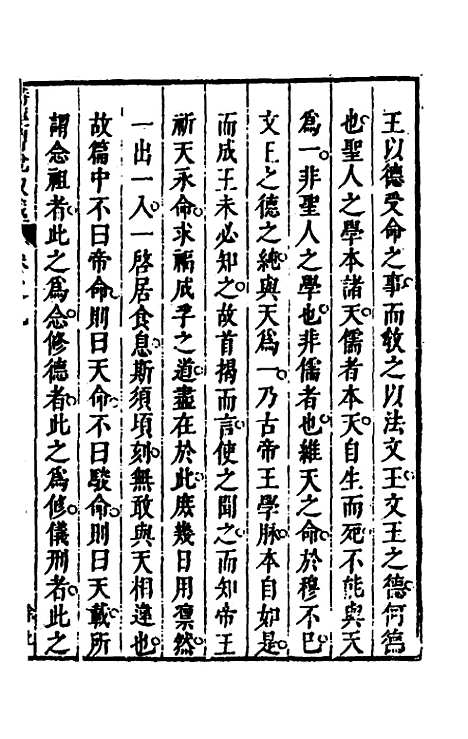 王以德受命之事而敎之以法文王文王之德何德
也聖人之學本諸天儒者本天自生而死不能與天
爲一非聖人之學也非儒者也維天之命於穆不已
文王之德之純與天爲一乃古帝王學脉本自如是
而成王未必知之故首揭而言使之聞之而知帝王
祈天永命求福成孚之道盡在於此庶幾日用凛然
一出一入一啓居食息斯須頃刻無敢與天相違也
故篇中不曰帝命則曰天命不曰駿命則曰天載所
謂念祖者此之爲念修德者此之爲修儀刑者此之